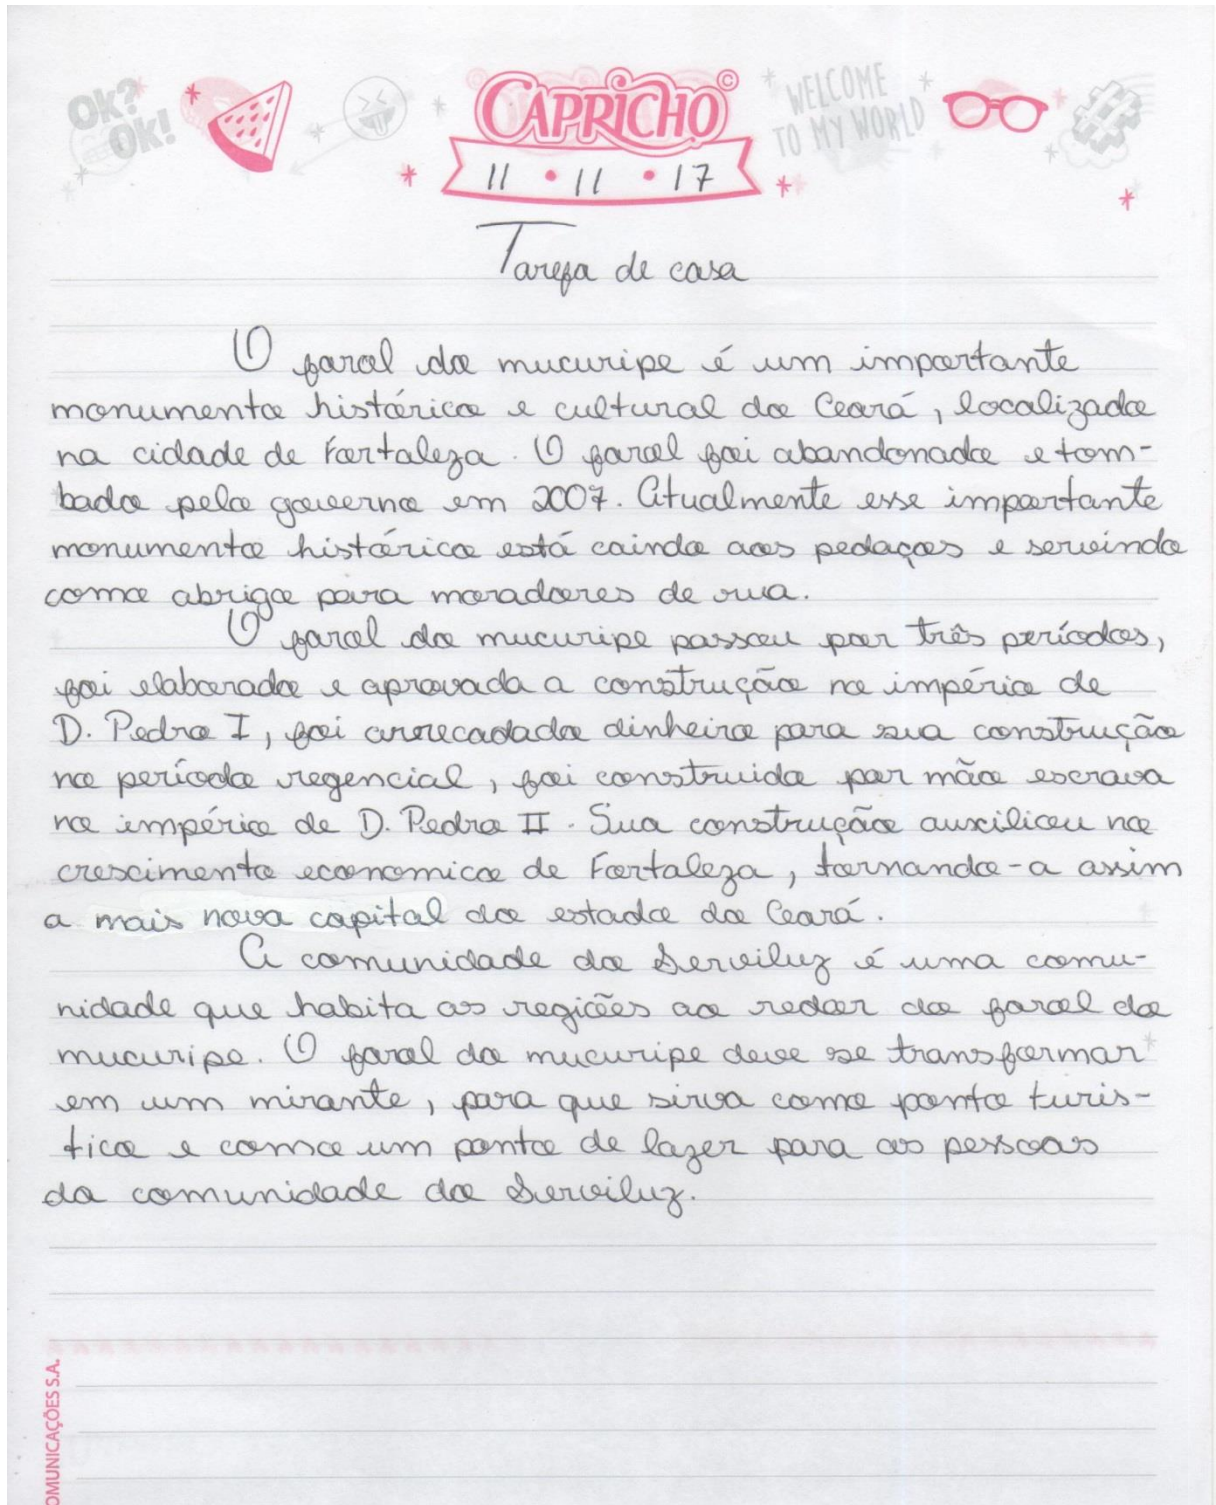 Ok?
Ok!
CAPRICHO©
WELCOME
TO MY WORLD
#
11 • 11 • 17
Tarefa de casa
O farol do mucuripe é um importante
monumento histórico e cultural do Ceará, localizado
na cidade de Fortaleza. O farol foi abandonado e tom-
bado pelo governo em 2007. Atualmente esse importante
monumento histórico está caindo aos pedaços e servindo
como abrigo para moradores de rua.
O farol do mucuripe passou por três períodos,
foi elaborado e aprovada a construção no império de
D. Pedro I, foi arrecadado dinheiro para sua construção
no período regencial, foi construido por mão escrava
no império de D. Pedro II. Sua construção auxiliou no
crescimento economico de Fortaleza, tornando-a assim
a mais nova capital do estado do Ceará.
A comunidade do Serviluz é uma comu-
nidade que habita as regiões ao redor do farol do
mucuripe. O farol do mucuripe deve se transformar
em um mirante, para que sirva como ponto turis-
tico e como um ponto de lazer para as pessoas
da comunidade do Serviluz.
OMUNICAÇÕES S.A.